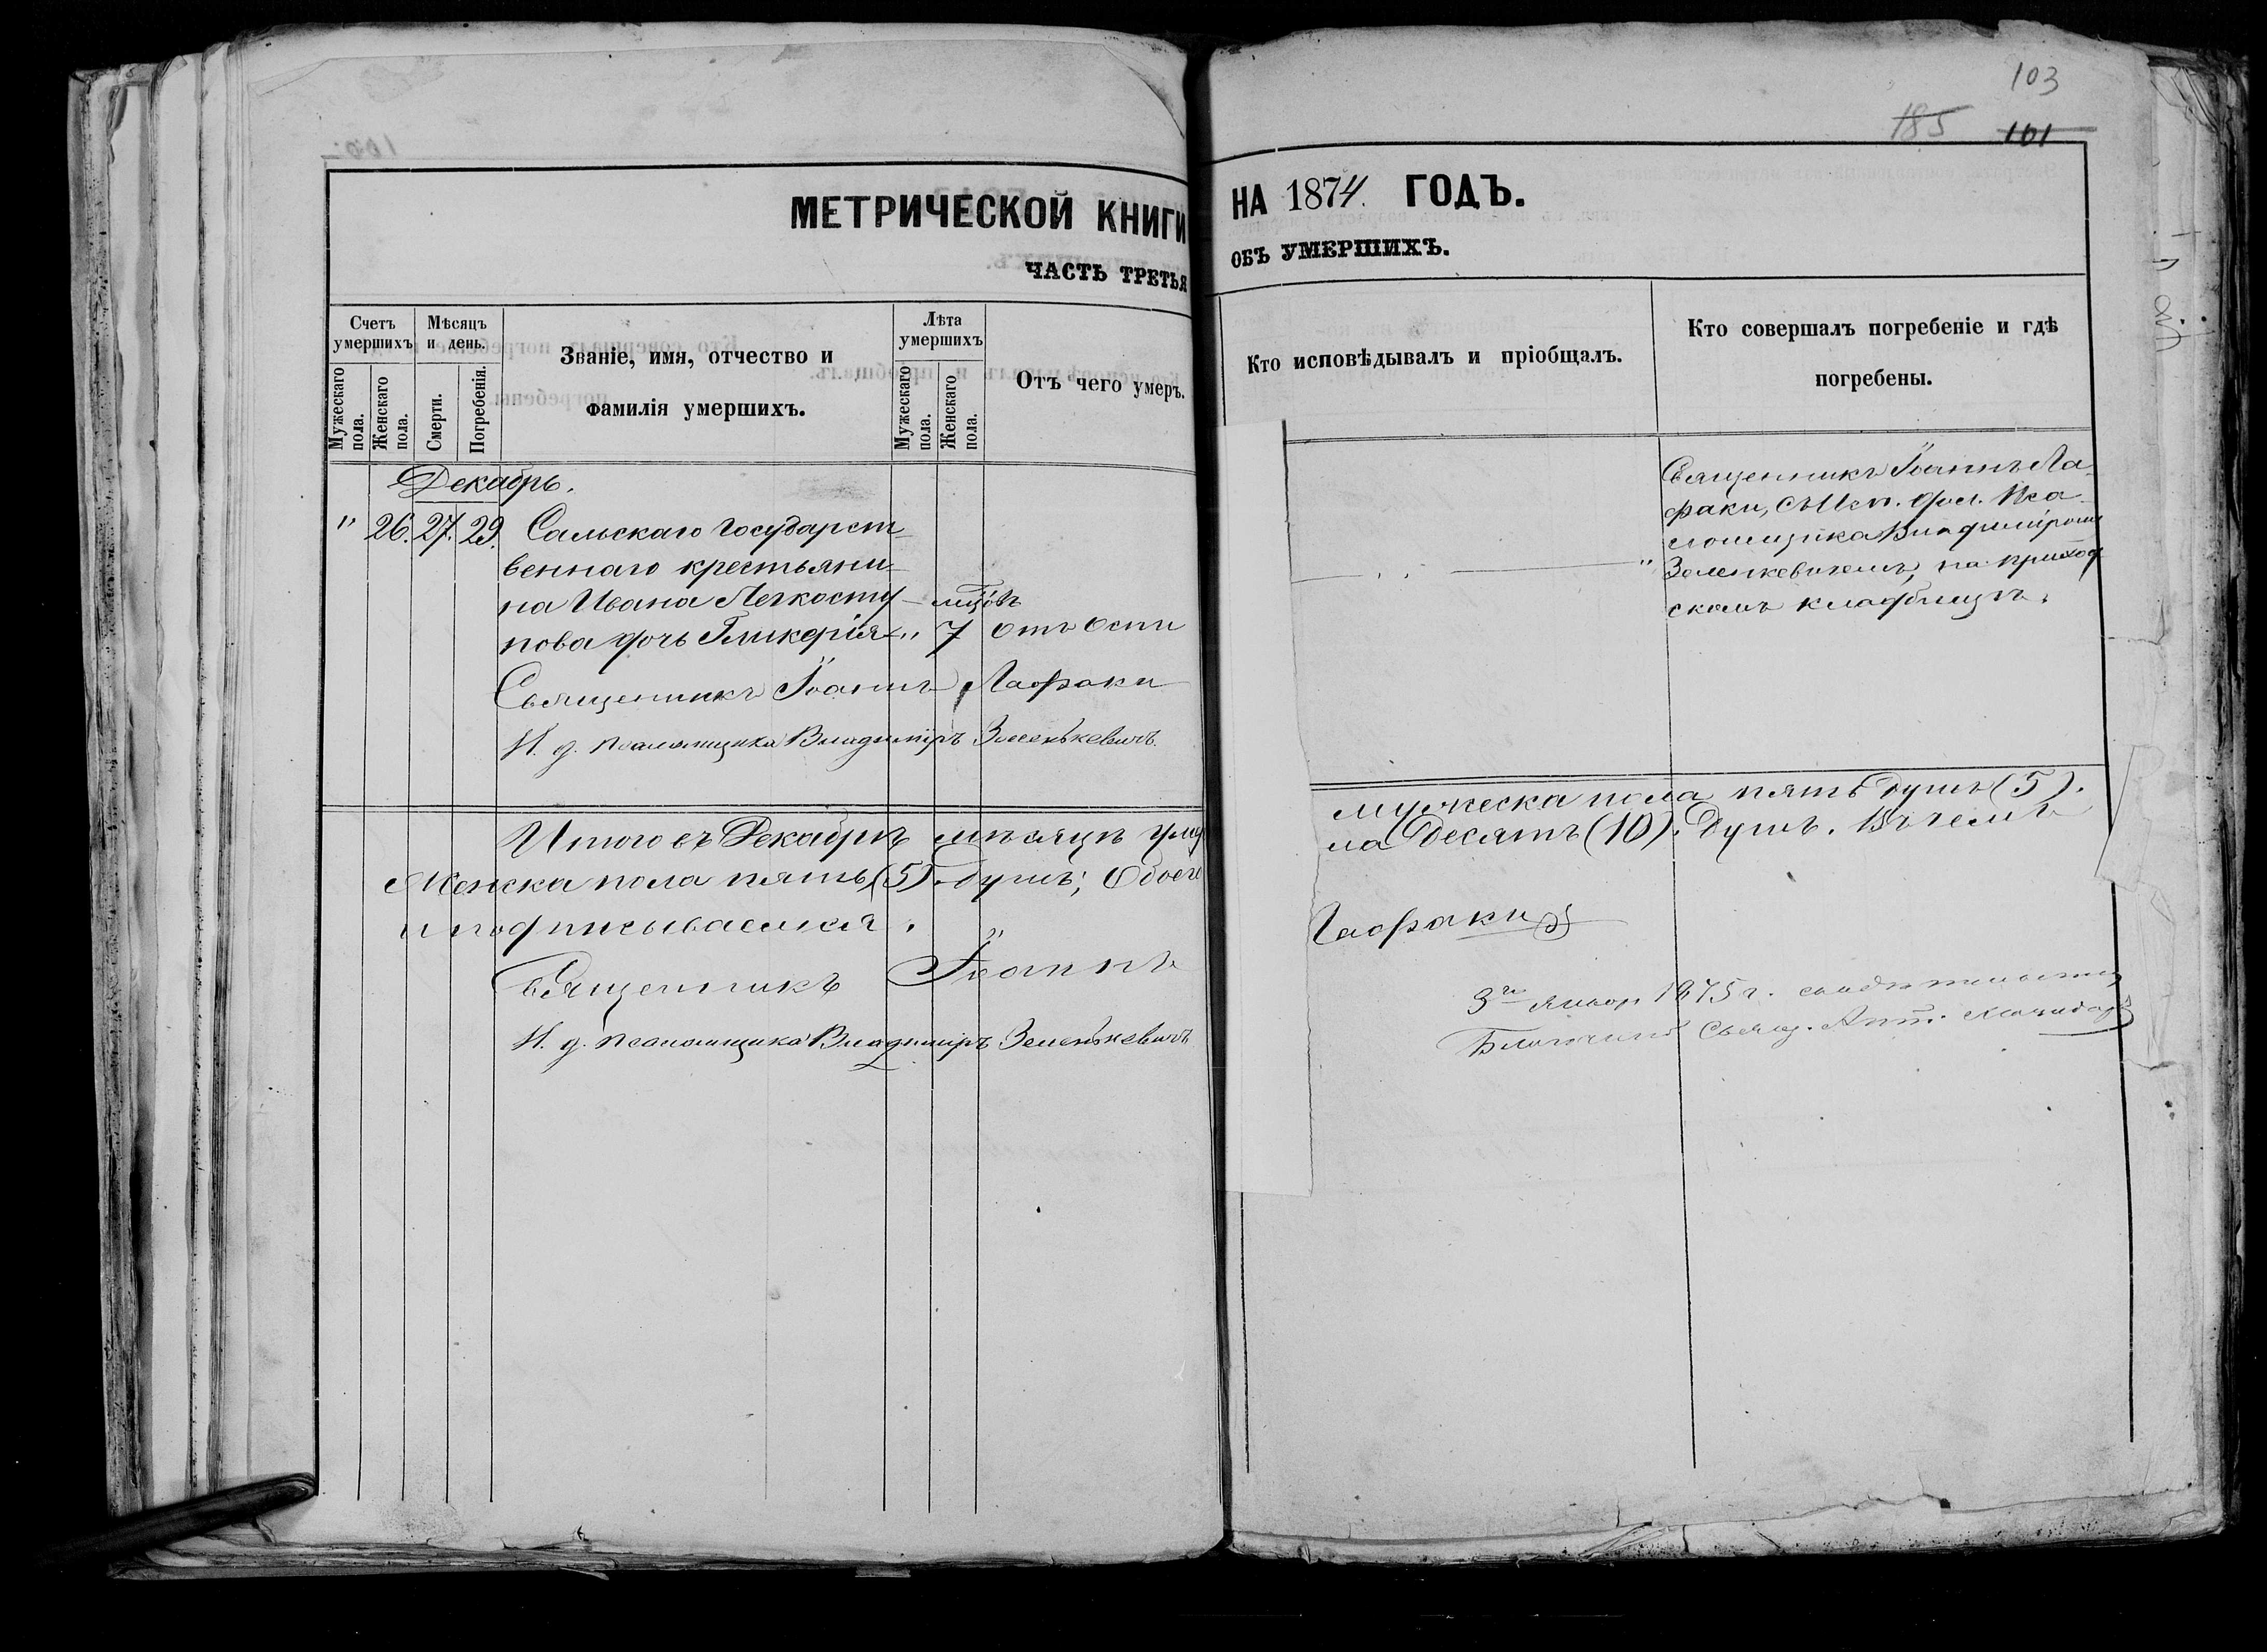 103
185 101
МЕТРИЧЕСКОЙ КНИГИ НА 1874. ГОДЪ.
ЧАСТЬ ТРЕТЬЯ ОБЪ УМЕРШИХЪ.
Счетъ умершихъ
Мужескаго пола.
Женскаго пола.
Мѣсяцъ и день.
Смерти.
Погребенія.
Званіе, имя, отчество и
фамилія умершихъ.
Лѣта умершихъ
Мужескаго пола.
Женскаго пола.
Отъ чего умеръ.
Кто исповѣдывалъ и пріобщалъ.
Кто совершалъ погребеніе и гдѣ
погребены.
Декабрь.
" 26. 27. 29. Сальскаго Государст-
веннаго крестьяни-
на Ивана Легкосту-
пова дочь Гликерія " 7 мцовъ отъ Оспи
Священникъ Іоаннъ Ла-
факи, съ Исп. дол. Пса-
ломщика Владиміромъ
Зеленкевичемъ, на приход
скомъ кладбищѣ.
Священникъ Іоаннъ Лафаки
И. д. псаломщика Владиміръ Зеленькевичъ.
Итого въ Декабрѣ мѣсяцѣ умер
мужеска пола пять душъ (5).
Женска пола пять (5) душъ; Обоего
ла Десять (10). Душъ. Въ чемъ
и подписываемся.
Священникъ Іоаннъ Лафаки
И. д. псаломщика Владиміръ Зеленькевичъ
3го Январ 1875 г.
Благочин. Свящ.